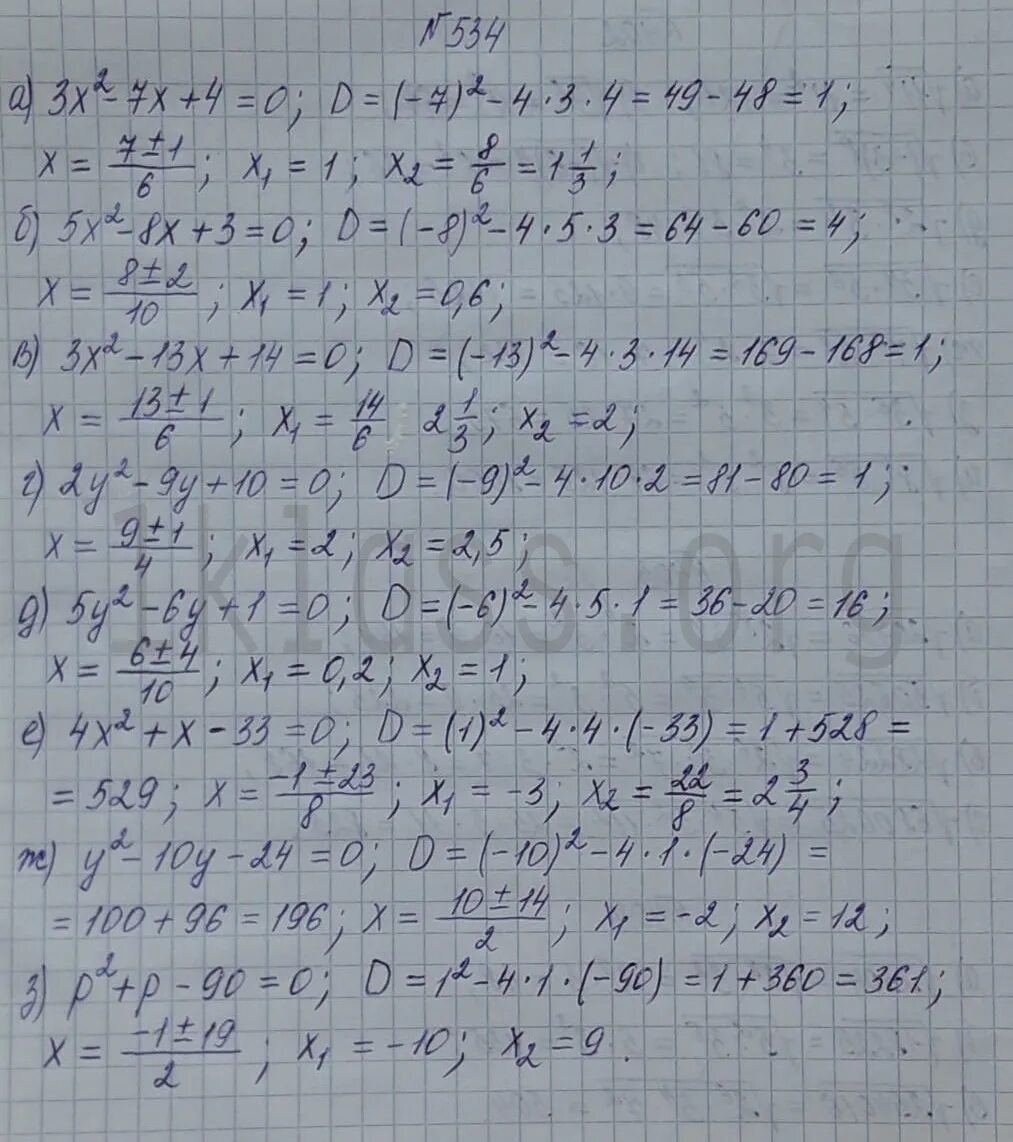 №534
а) 3x² - 7x + 4 = 0; D = (-7)² - 4·3·4 = 49 - 48 = 1;
x = (7±1)/6; x₁ = 1; x₂ = 8/6 = 1 1/3;
б) 5x² - 8x + 3 = 0; D = (-8)² - 4·5·3 = 64 - 60 = 4;
x = (8±2)/10; x₁ = 1; x₂ = 0,6;
в) 3x² - 13x + 14 = 0; D = (-13)² - 4·3·14 = 169 - 168 = 1;
x = (13±1)/6; x₁ = 14/6 2 1/3; x₂ = 2;
г) 2y² - 9y + 10 = 0; D = (-9)² - 4·10·2 = 81 - 80 = 1;
x = (9±1)/4; x₁ = 2; x₂ = 2,5;
1klass.org
д) 5y² - 6y + 1 = 0; D = (-6)² - 4·5·1 = 36 - 20 = 16;
x = (6±4)/10; x₁ = 0,2; x₂ = 1;
е) 4x² + x - 33 = 0; D = (1)² - 4·4·(-33) = 1 + 528 =
= 529; x = (-1±23)/8; x₁ = -3; x₂ = 22/8 = 2 3/4;
ж) y² - 10y - 24 = 0; D = (-10)² - 4·1·(-24) =
= 100 + 96 = 196; x = (10±14)/2; x₁ = -2; x₂ = 12;
з) p² + p - 90 = 0; D = 1² - 4·1·(-90) = 1 + 360 = 361;
x = (-1±19)/2; x₁ = -10; x₂ = 9.